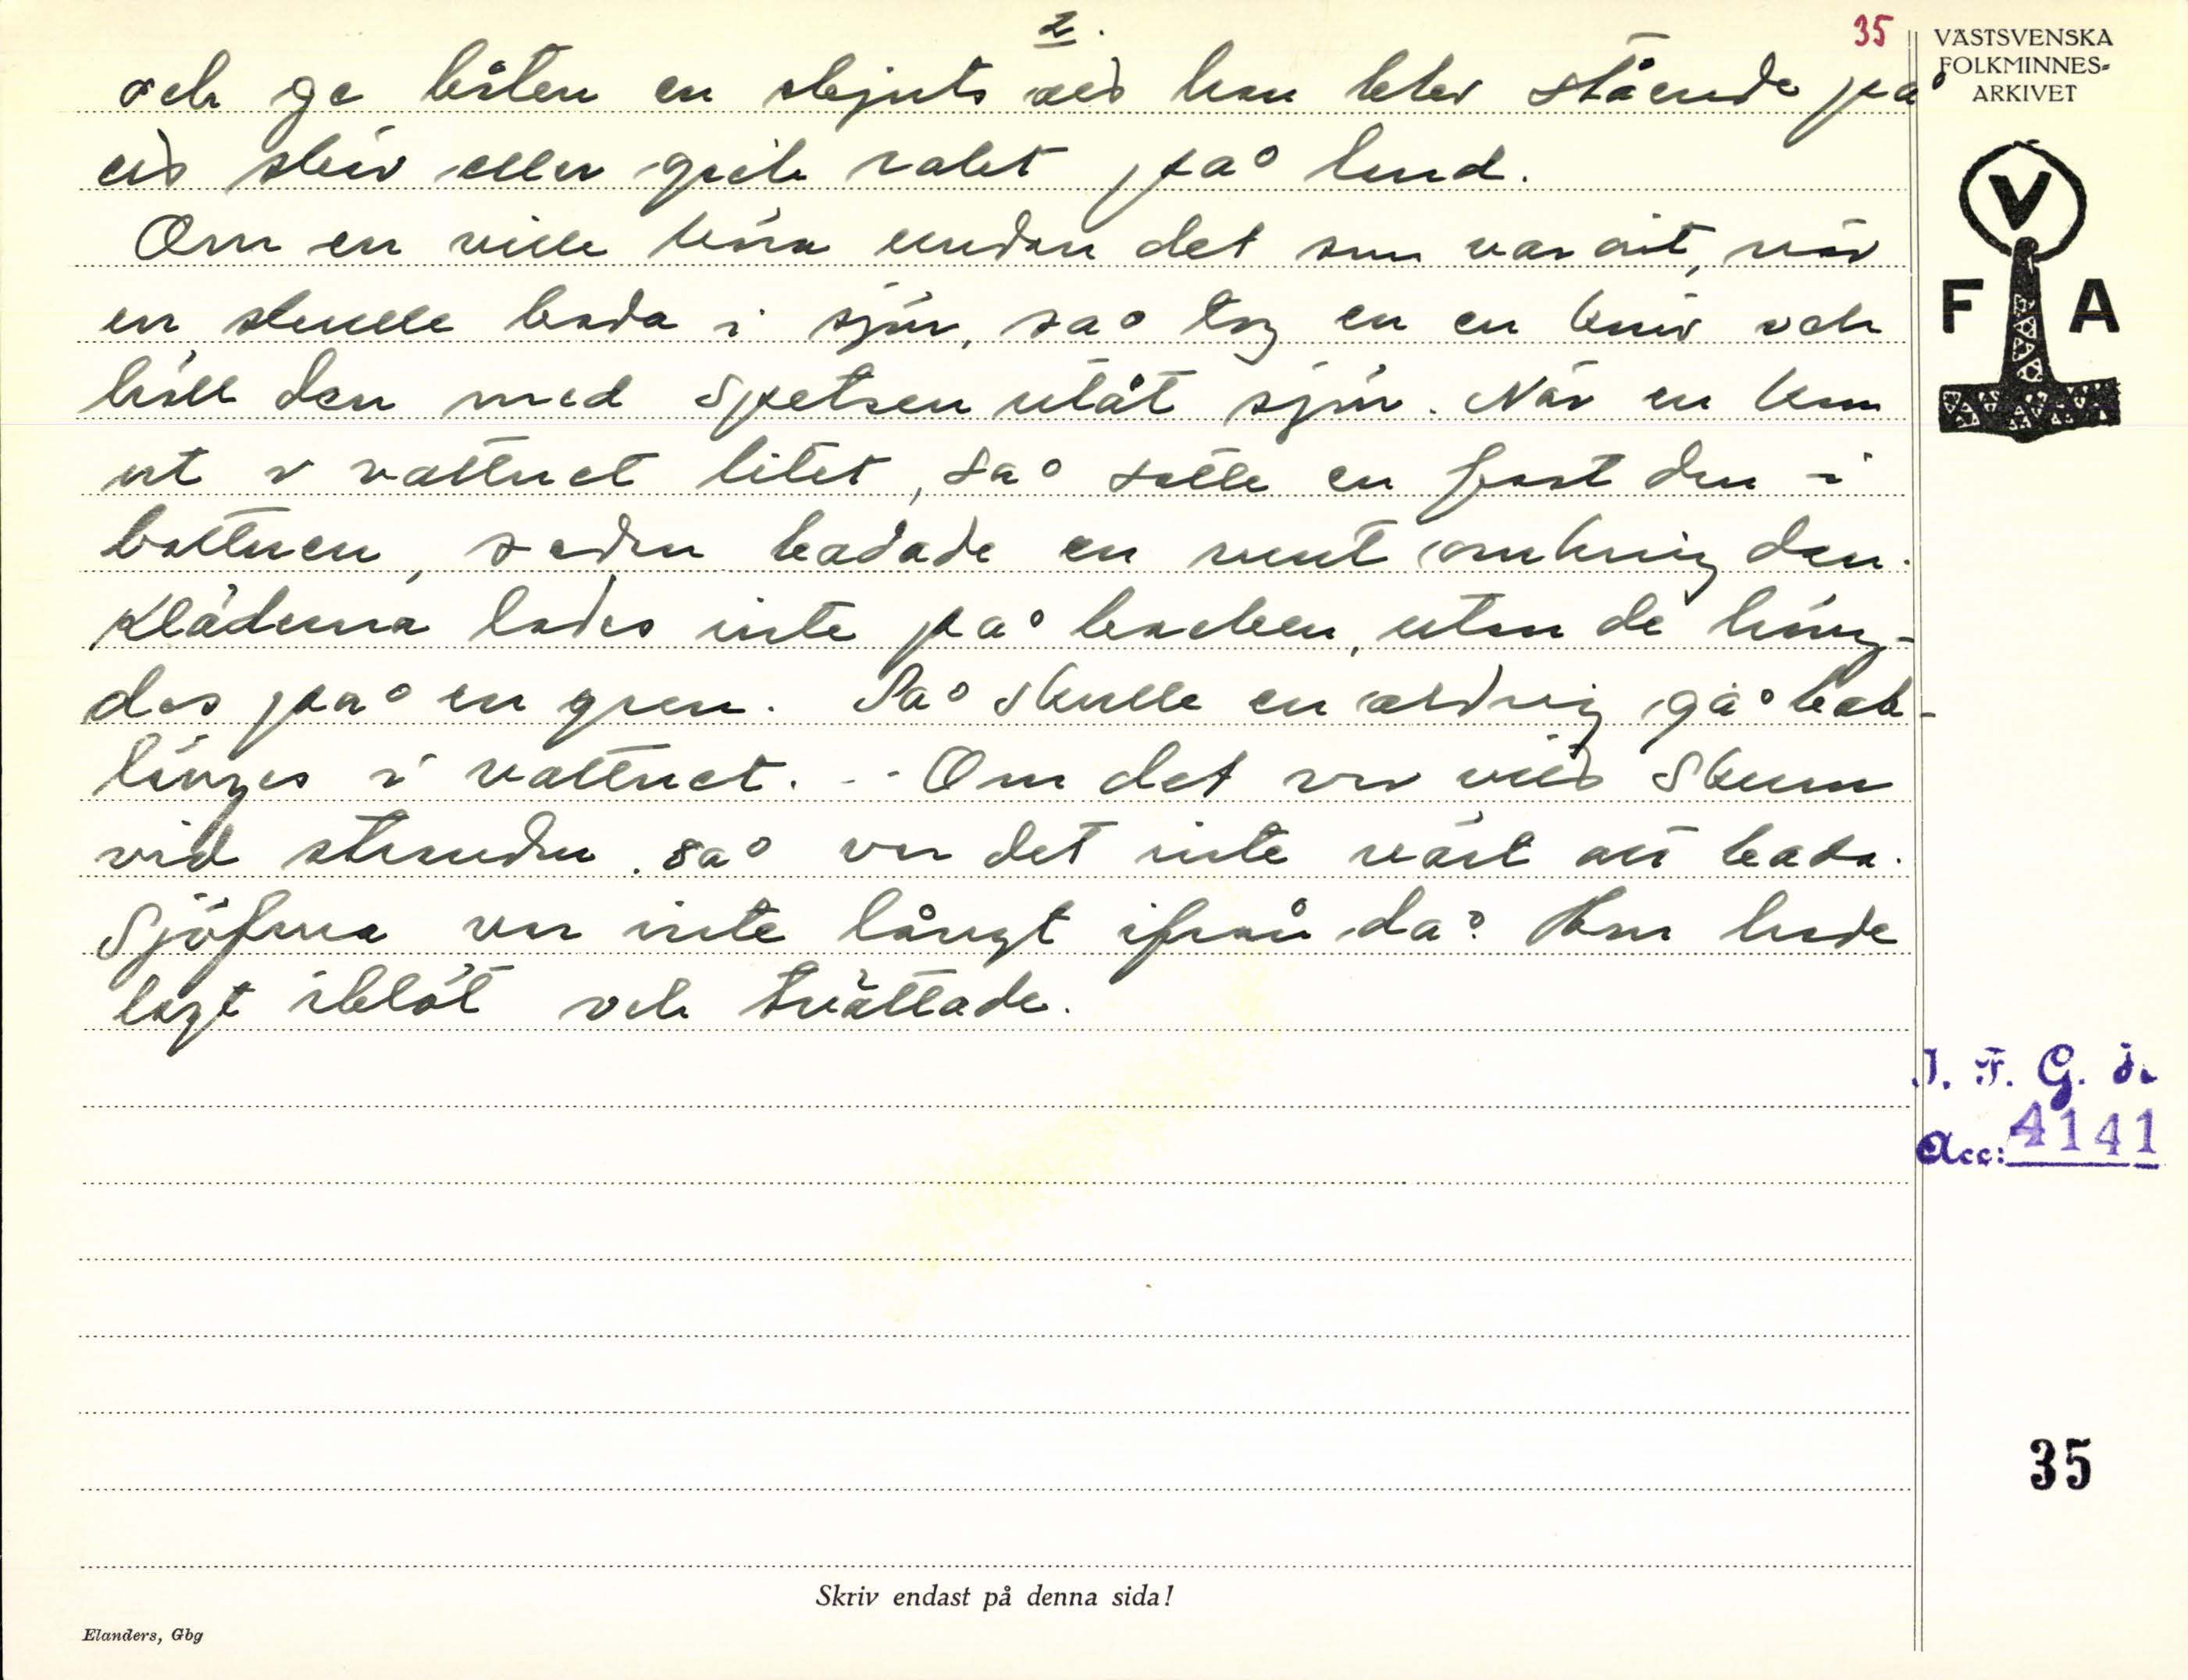 2.
35
och ge båten en skjuts antingen han blev stående på
sis sköv eller gick rakt på land.
Om en ville köra undan det som var ont, när
en skulle bada i sjön, så tog en en kniv och
höll den med spetsen utåt sjön. När en kom
ut i vattnet litet, så satte en fast den i
bottnen, sedan badade en runt omkring den.
Kläderna lades inte på backen, utan de häng-
des på en gren. Så skulle en aldrig gå bak-
länges i vattnet. -- Om det var vitt skum
vid stranden, så var det inte värt att bada.
Sjöfrua var inte långt ifrån då. Hon hade
lagt i blöt och tvättade.
VÄSTSVENSKA
FOLKMINNES-
ARKIVET
V
F A
I. F. G. s.
Acc: 4141
35
Skriv endast på denna sida!
Elanders, Gbg